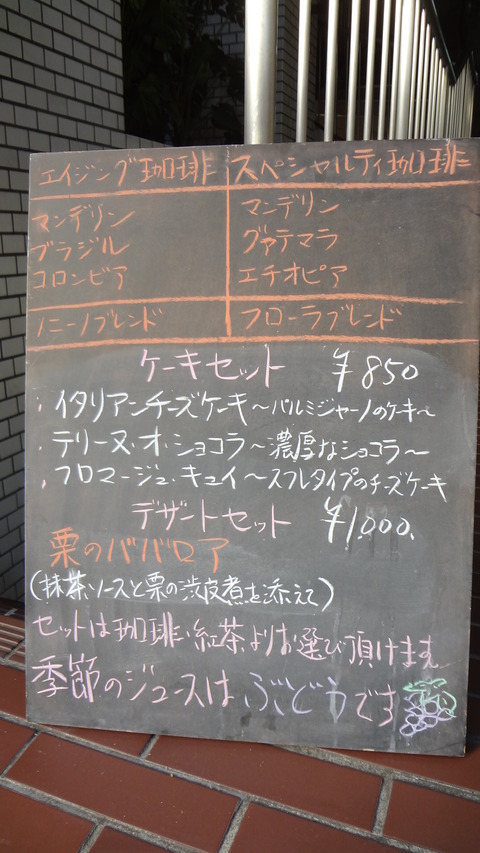 エイジング珈琲 スペシャルティ珈琲
マンデリン マンデリン
ブラジル グァテマラ
コロンビア エチオピア
ノニーノブレンド フローラブレンド
ケーキセット ¥850
・イタリアンチーズケーキ～パルミジャーノのケーキ～
・テリーヌ・オ・ショコラ～濃厚なショコラ～
・フロマージュ・キュイ～スフレタイプのチーズケーキ
デザートセット ¥1,000.
栗のババロア
(抹茶ソースと栗の渋皮煮を添えて)
セットは珈琲・紅茶よりお選び頂けます
季節のジュースは ぶどうです